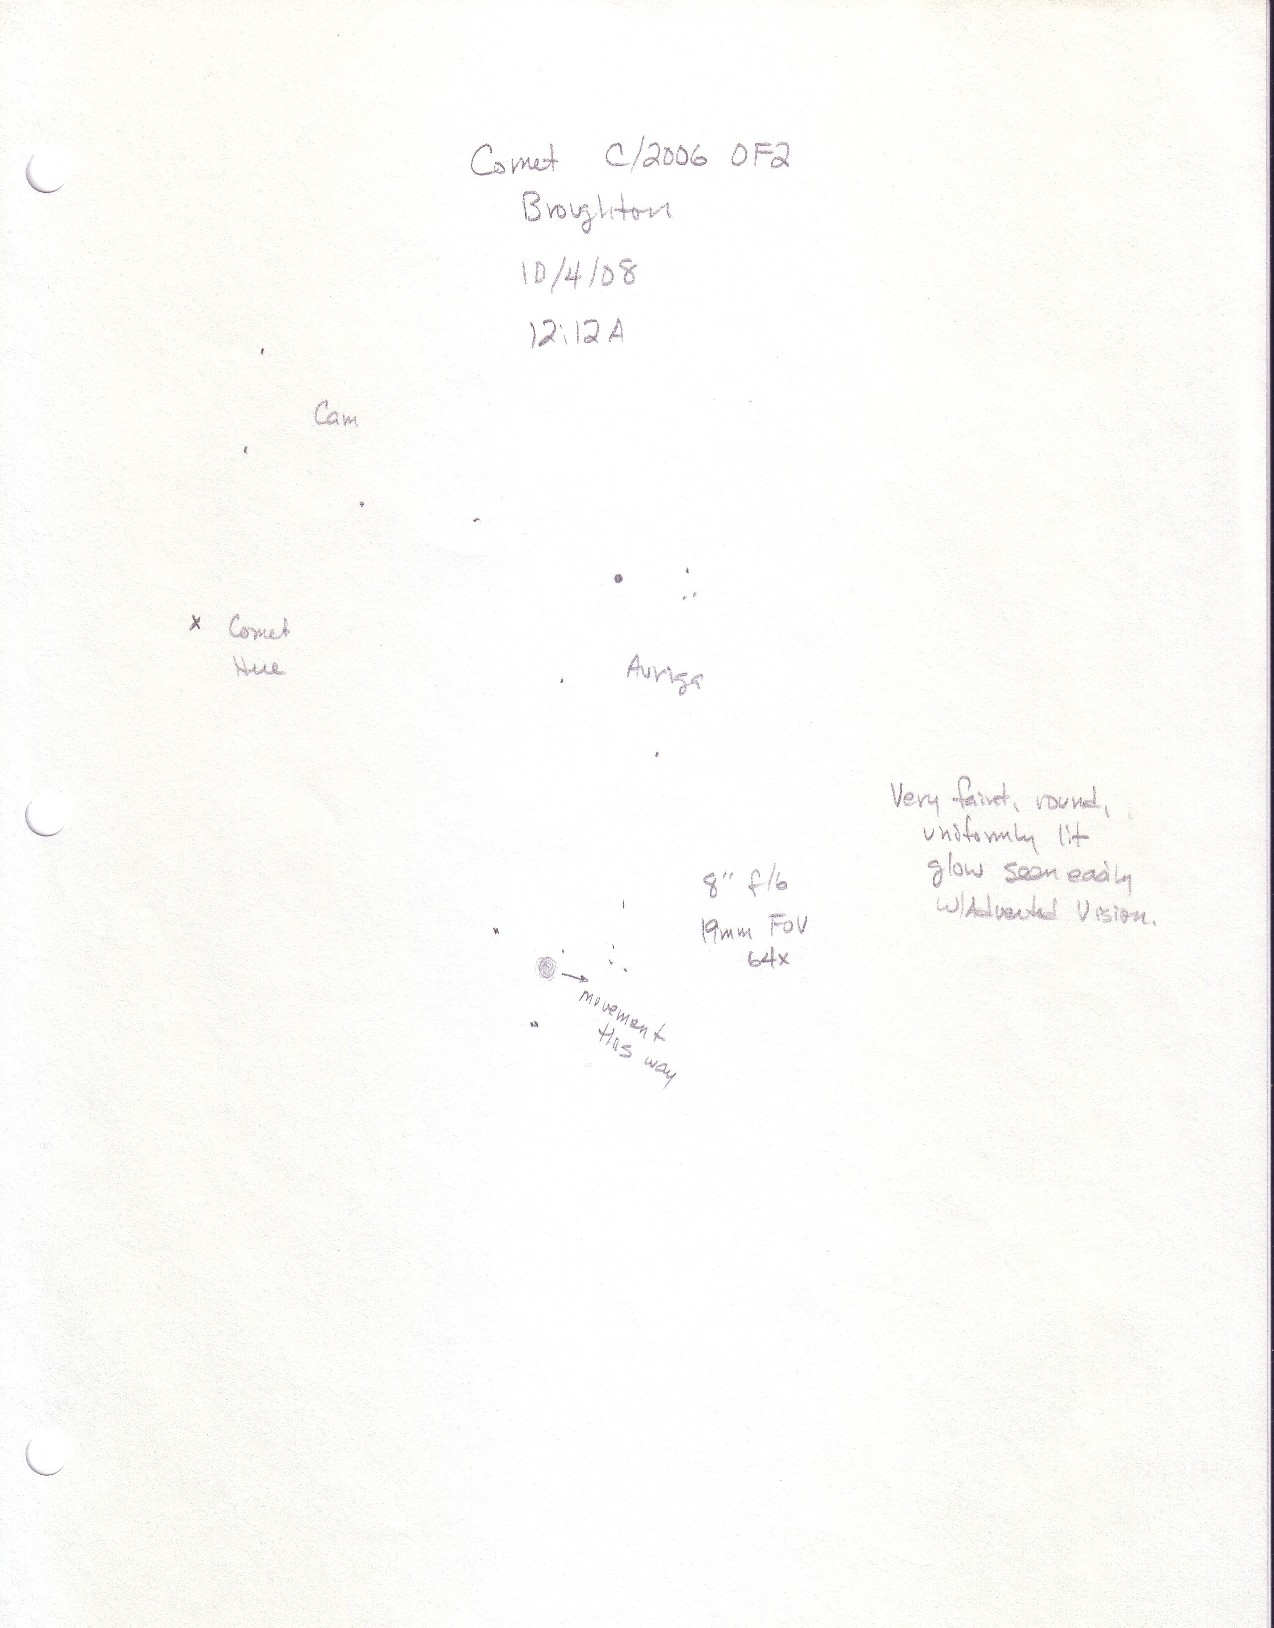 Comet C/2006 OF2
Broughton
10/4/08
12:12A
Cam
x Comet
Here
Auriga
Very faint, round,
uniformly lit
glow seen easily
w/Adverted Vision.
8" f/6
19mm FOV
64x
movement
this way